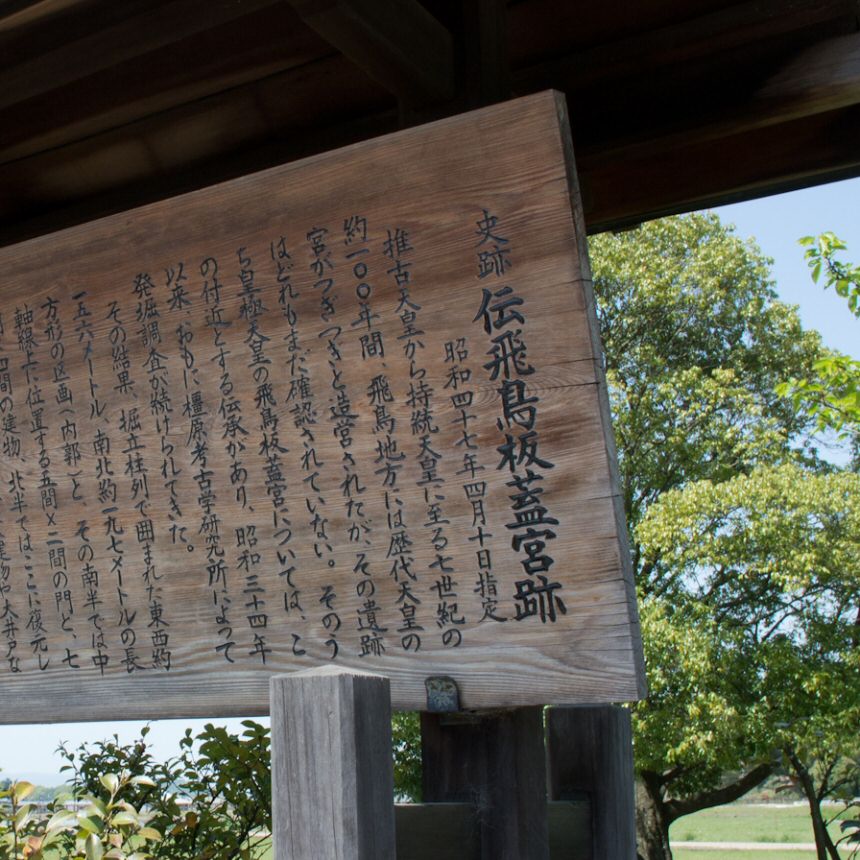 史跡 伝飛鳥板蓋宮跡
昭和四十七年四月十日指定
推古天皇から持統天皇に至る七世紀の
約一〇〇年間、飛鳥地方には歴代天皇の
宮がつぎつぎと造営されたが、その遺跡
はどれもまだ確認されていない。そのう
ち皇極天皇の飛鳥板蓋宮については、こ
の付近とする伝承があり、昭和三十四年
以来、おもに橿原考古学研究所によって
発掘調査が続けられてきた。
その結果、掘立柱列で囲まれた東西約
一五六メートル、南北約一九七メートルの長
方形の区画(内郭)と、その南半では中
軸線上に位置する五間×二間の門と、七
間×四間の建物、北半ではここに復元し
建物や大井戸な